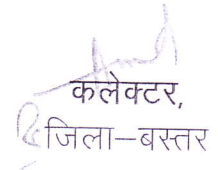 कलेक्टर,
जिला–बस्तर